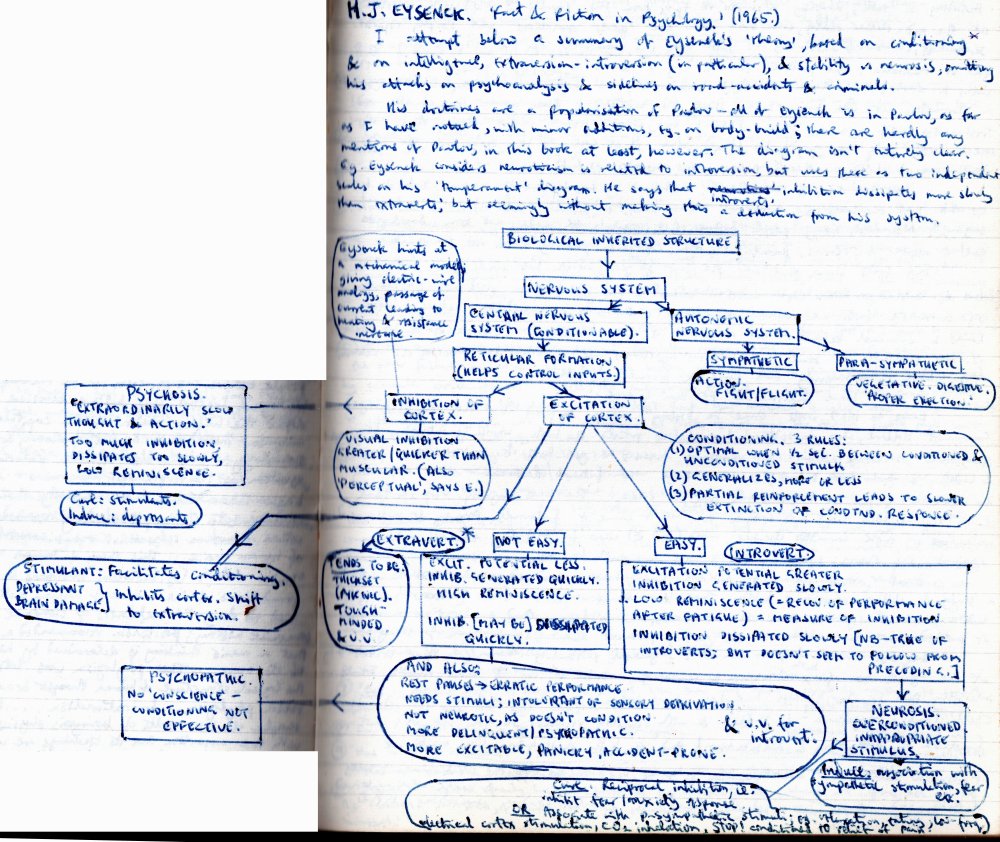 H.J. EYSENCK. 'Fact & Fiction in Psychology.' (1965.)
I attempt below a summary of Eysenck's 'theory', based on conditioning*
& on intelligence, extraversion-introversion (in particular), & stability vs neurosis, omitting
his attacks on psychoanalysis & sidelines on road-accidents & criminals.
His doctrines are a popularisation of Pavlov - all of Eysenck is in Pavlov, as far
as I have noticed, with minor additions, eg. on body-build; there are hardly any
mentions of Pavlov, in this book at least, however. The diagram isn't entirely clear.
Eg. Eysenck considers neuroticism is related to introversion, but uses these as two independent
scales on his 'temperament' diagram. He says that introverts' inhibition dissipates more slowly
than extraverts'; but seemingly without making this a deduction from his system.
BIOLOGICAL INHERITED STRUCTURE
Eysenck hints at
a mechanical model,
giving electric-wire
analogy, passage of
current leading to
heating & resistance
increase.
NERVOUS SYSTEM
CENTRAL NERVOUS
SYSTEM (CONDITIONABLE).
AUTONOMIC
NERVOUS SYSTEM.
RETICULAR FORMATION
(HELPS CONTROL INPUTS.)
SYMPATHETIC
PARA-SYMPATHETIC
ACTION.
FIGHT/FLIGHT.
VEGETATIVE. DIGESTIVE.
'PROPER ERECTION.'
PSYCHOSIS.
"EXTRAORDINARILY SLOW
THOUGHT & ACTION."
TOO MUCH INHIBITION,
DISSIPATES TOO SLOWLY,
LOW REMINISCENCE.
INHIBITION OF
CORTEX.
EXCITATION
OF CORTEX.
VISUAL INHIBITION
GREATER/QUICKER THAN
MUSCULAR. (ALSO
'PERCEPTUAL', SAYS E.)
CONDITIONING. 3 RULES:
(1) OPTIMAL WHEN ½ SEC. BETWEEN CONDITIONED &
UNCONDITIONED STIMULI
(2) GENERALIZES, MORE OR LESS
(3) PARTIAL REINFORCEMENT LEADS TO SLOWER
EXTINCTION OF CONDTND. RESPONSE.
Cure: stimulants.
Induce: depressants.
EXTRAVERT.*
NOT EASY.
EASY.
INTROVERT.
STIMULANT: Facilitates conditioning.
DEPRESSANT
BRAIN DAMAGE } Inhibits cortex. Shift
to extraversion.
TENDS TO BE:
THICKSET
(PYKNIC).
TOUGH-
MINDED.
& V.V.
EXCIT. POTENTIAL LESS.
INHIB. GENERATED QUICKLY.
HIGH REMINISCENCE.
INHIB. [MAY BE] DISSIPATED
QUICKLY.
EXCITATION POTENTIAL GREATER
INHIBITION GENERATED SLOWLY.
LOW REMINISCENCE (= RECOV. OF PERFORMANCE
AFTER FATIGUE) = MEASURE OF INHIBITION
INHIBITION DISSIPATED SLOWLY [NB - TRUE OF
INTROVERTS; BUT DOESN'T SEEM TO FOLLOW FROM
PRECEDING.]
PSYCHOPATHIC.
NO 'CONSCIENCE' -
CONDITIONING NOT
EFFECTIVE.
AND ALSO:
REST PAUSES → ERRATIC PERFORMANCE.
NEEDS STIMULI; INTOLERANT OF SENSORY DEPRIVATION.
NOT NEUROTIC, AS DOESN'T CONDITION.
MORE DELINQUENT/PSYCHOPATHIC.
MORE EXCITABLE, PANICKY, ACCIDENT-PRONE.
& v.v. for
introvert.
NEUROSIS.
OVERCONDITIONED
INAPPROPRIATE
STIMULUS.
Induce: association with
sympathetic stimulation, fear
etc.
Cure: Reciprocal inhibition, ie.
inhibit fear/anxiety response
OR Associate with parasympathetic stimuli eg relaxation, eating,
electrical cortex stimulation, CO2 inhalation, 'STOP!' conditioned to relief of pain